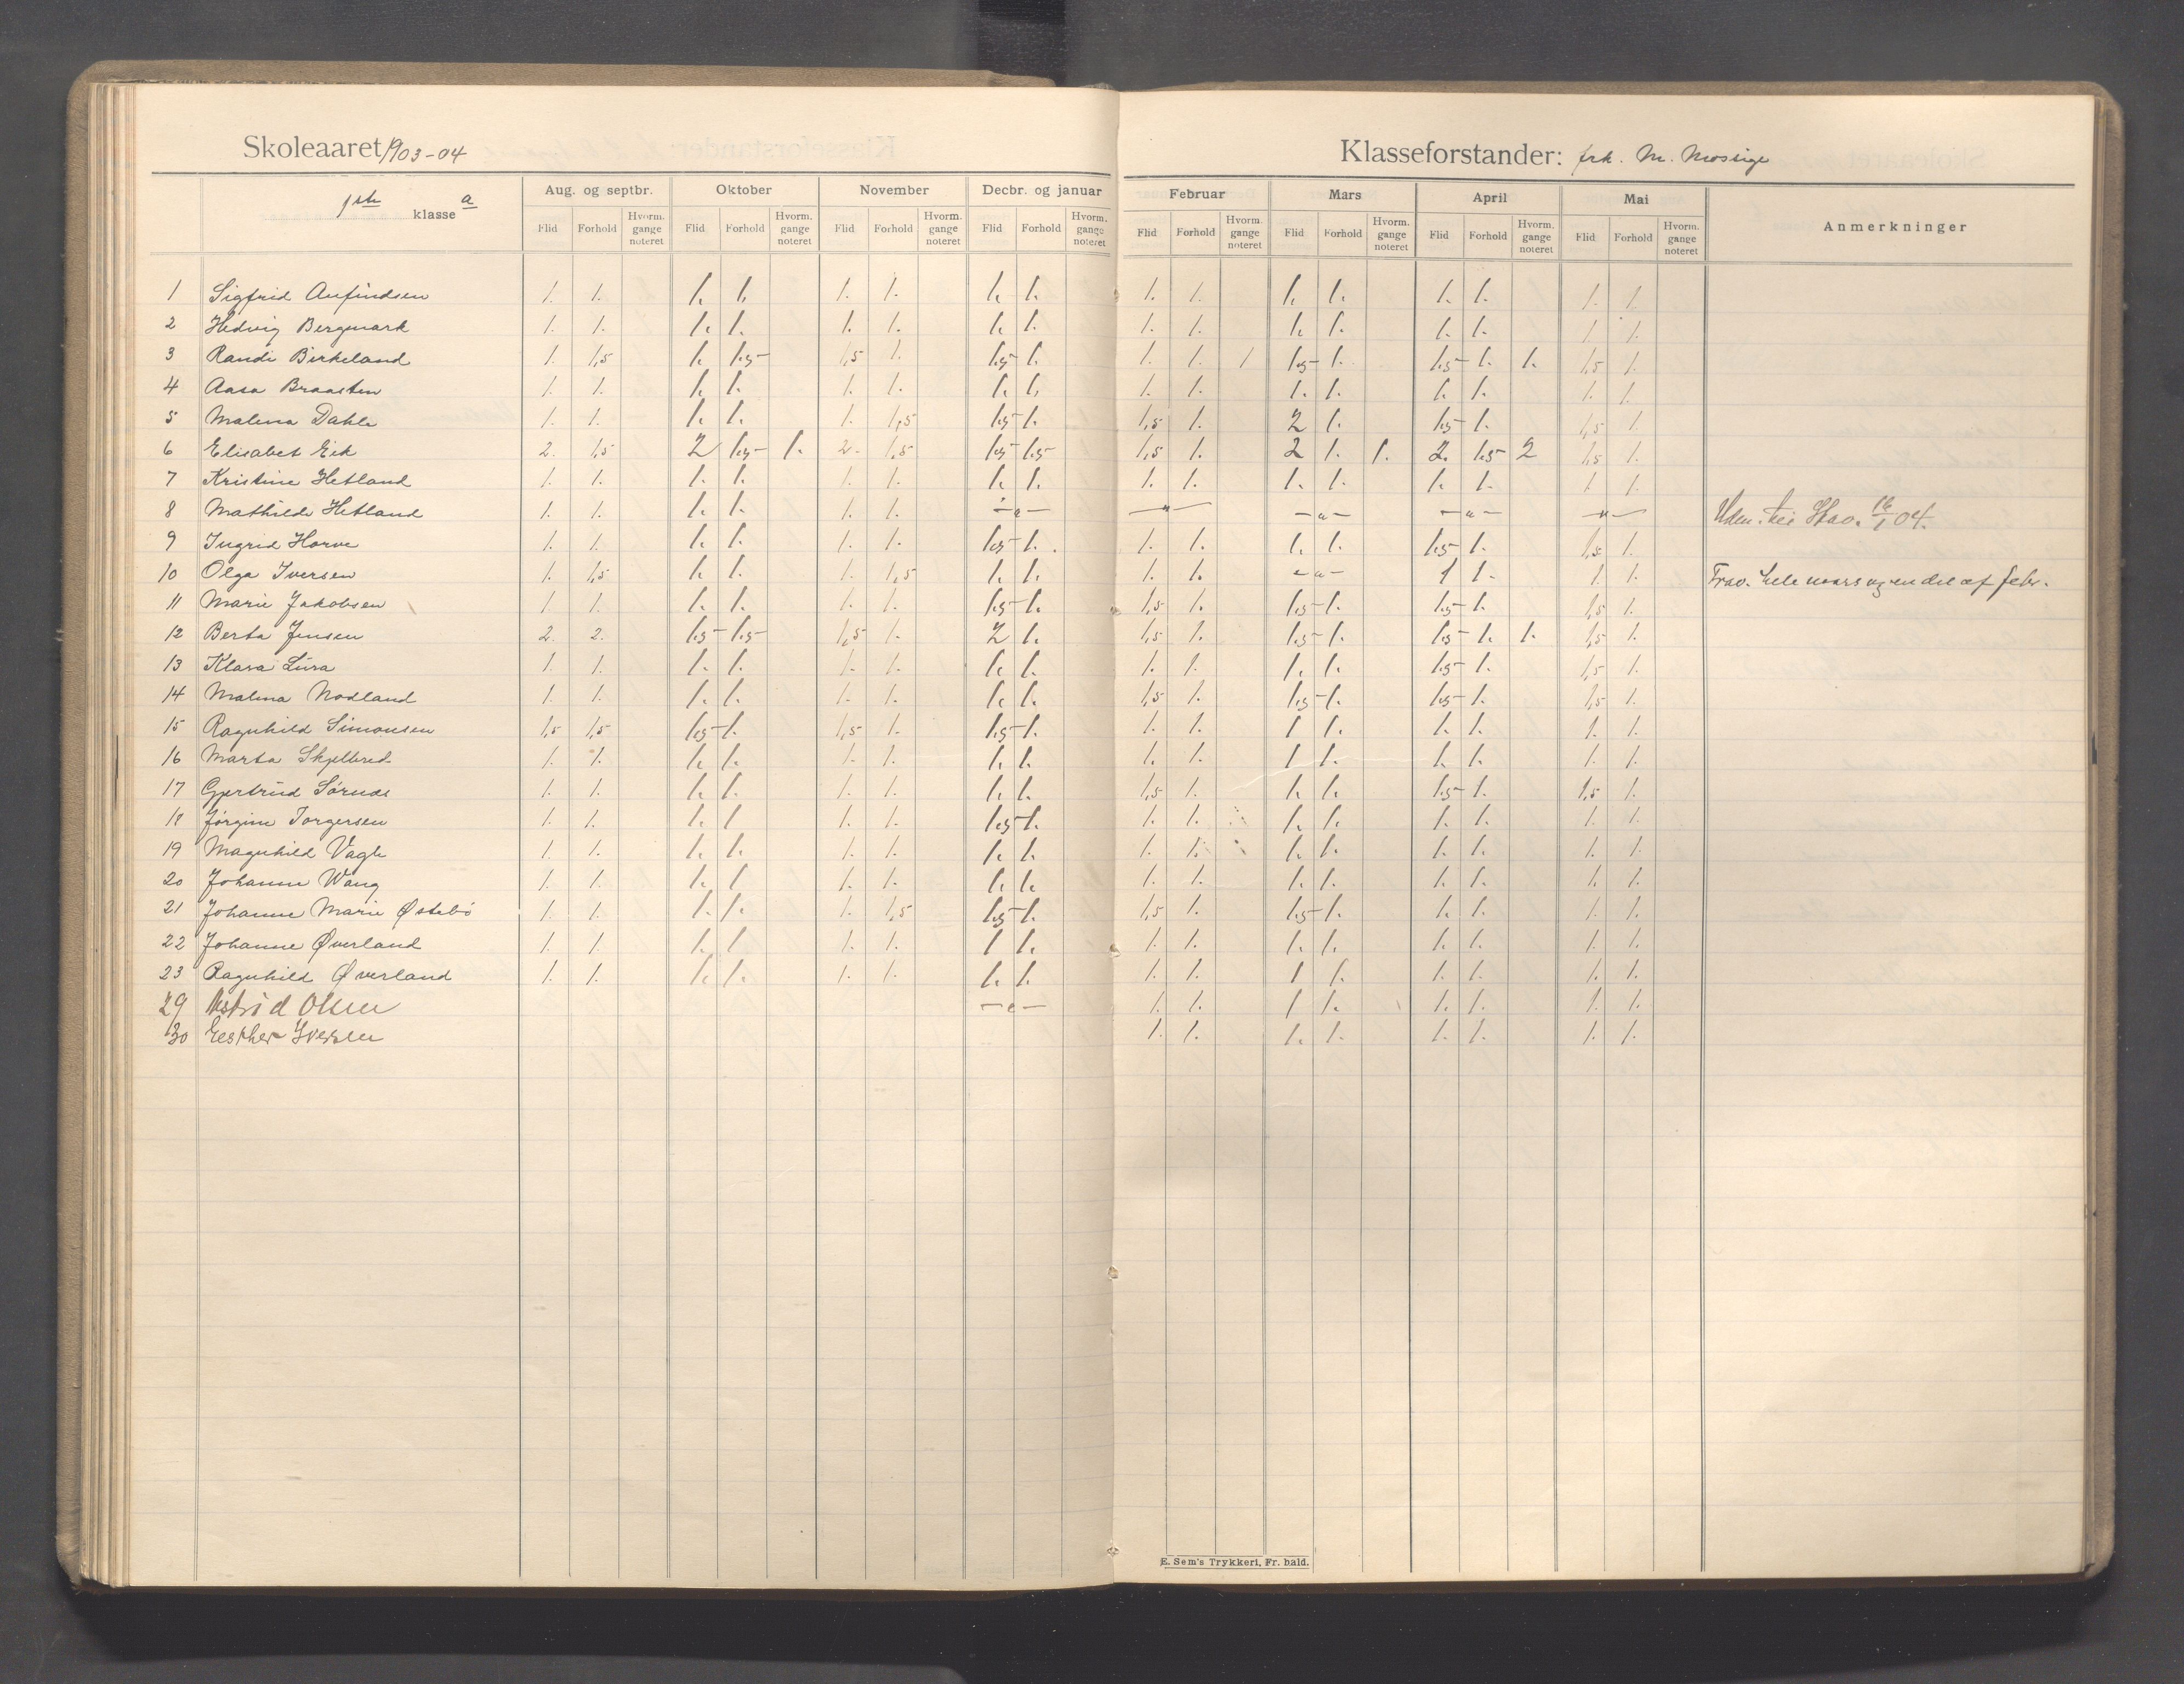 Skoleaaret 1903-04 Klasseforstander: frk. M. Mossige
1ste klasse a Aug. og septbr. Oktober November Decbr. og januar Februar Mars April Mai Anmerkninger
Flid Forhold Hvorm. gange noteret Flid Forhold Hvorm. gange noteret Flid Forhold Hvorm. gange noteret Flid Forhold Hvorm. gange noteret Flid Forhold Hvorm. gange noteret Flid Forhold Hvorm. gange noteret Flid Forhold Hvorm. gange noteret Flid Forhold Hvorm. gange noteret
1 Sigfrid Anfindsen 1. 1. 1. 1. 1. 1. 1. 1. 1. 1. 1. 1. 1. 1. 1. 1.
2 Hedvig Bergmark 1. 1. 1. 1. 1. 1. 1. 1. 1. 1. 1. 1. 1. 1. 1. 1.
3 Randi Birkeland 1. 1,5 1. 1.5 1,5 1. 1.5 1. 1. 1. 1 1.5 1. 1.5 1. 1. 1,5 1.
4 Aasa Braasten 1. 1. 1. 1. 1. 1. 1. 1. 1. 1. 1. 1. 1. 1. 1. 1.
5 Malena Dahle 1. 1. 1. 1. 1. 1,5 1.5 1. 1,5 1. 2 1. 1.5 1. 1,5 1.
6 Elisabet Eik 2. 1,5 2 1.5 1. 2. 1,5 1.5 1.5 1,5 1. 2 1. 1. 2. 1.5 2 1,5 1.
7 Kristine Hetland 1. 1. 1. 1. 1. 1. 1. 1. 1. 1. 1. 1. 1. 1. 1. 1.
8 Mathilde Hetland 1. 1. 1. 1. 1. 1. —"— —"— —"— —"— —"— Stav. 16/1 04.
9 Ingrid Horve 1. 1. 1. 1. 1. 1. 1.5 1. 1. 1. 1. 1. 1.5 1. 1,5 1.
10 Olga Iversen 1. 1,5 1. 1. 1. 1,5 1. 1. 1. 1. —"— 1 1. 1. 1. Frav. hele mars og en del af febr.
11 Marie Jakobsen 1. 1. 1. 1. 1. 1. 1.5 1. 1,5 1. 1.5 1. 1.5 1. 1,5 1.
12 Berta Jensen 2. 2. 1.5 1.5 1,5 1. 2 1. 1,5 1. 1.5 1. 1.5 1. 1. 1,5 1.
13 Klara Lura 1. 1. 1. 1. 1. 1. 1. 1. 1. 1. 1. 1. 1.5 1. 1,5 1.
14 Malena Nodland 1. 1. 1. 1. 1. 1. 1. 1. 1,5 1. 1.5 1. 1.5 1. 1,5 1.
15 Ragnhild Simonsen 1,5 1,5 1.5 1. 1,5 1. 1.5 1. 1. 1. 1 1. 1. 1. 1. 1.
16 Marta Skjelbred 1. 1. 1. 1. 1. 1. 1. 1. 1. 1. 1 1. 1. 1. 1. 1.
17 Gjertrud Sørnes 1. 1. 1. 1. 1. 1. 1. 1. 1,5 1. 1. 1. 1.5 1. 1,5 1.
18 Jørgine Torgersen 1. 1. 1. 1 1. 1. 1.5 1. 1. 1. 1. 1. 1. 1. 1. 1.
19 Magnhild Vagle 1. 1. 1. 1. 1. 1. 1. 1. 1. 1. 1. 1. 1. 1. 1. 1.
20 Johanne Wang 1. 1. 1. 1 1. 1. 1. 1. 1. 1. 1. 1. 1. 1. 1. 1.
21 Johanne Marie Østebø 1. 1. 1. 1. 1. 1,5 1.5 1. 1,5 1. 1.5 1. 1. 1. 1. 1.
22 Johanne Øverland 1. 1. 1. 1 1. 1. 1 1. 1. 1. 1. 1. 1. 1. 1. 1.
23 Ragnhild Øverland 1. 1. 1. 1. 1. 1. 1. 1. 1. 1. 1 1. 1. 1. 1. 1.
29 Astrid Olsen —"— 1. 1. 1 1. 1. 1. 1. 1.
30 Esther Iversen 1. 1. 1. 1. 1. 1. 1. 1.
E. Sem's Trykkeri, Fr. hald.